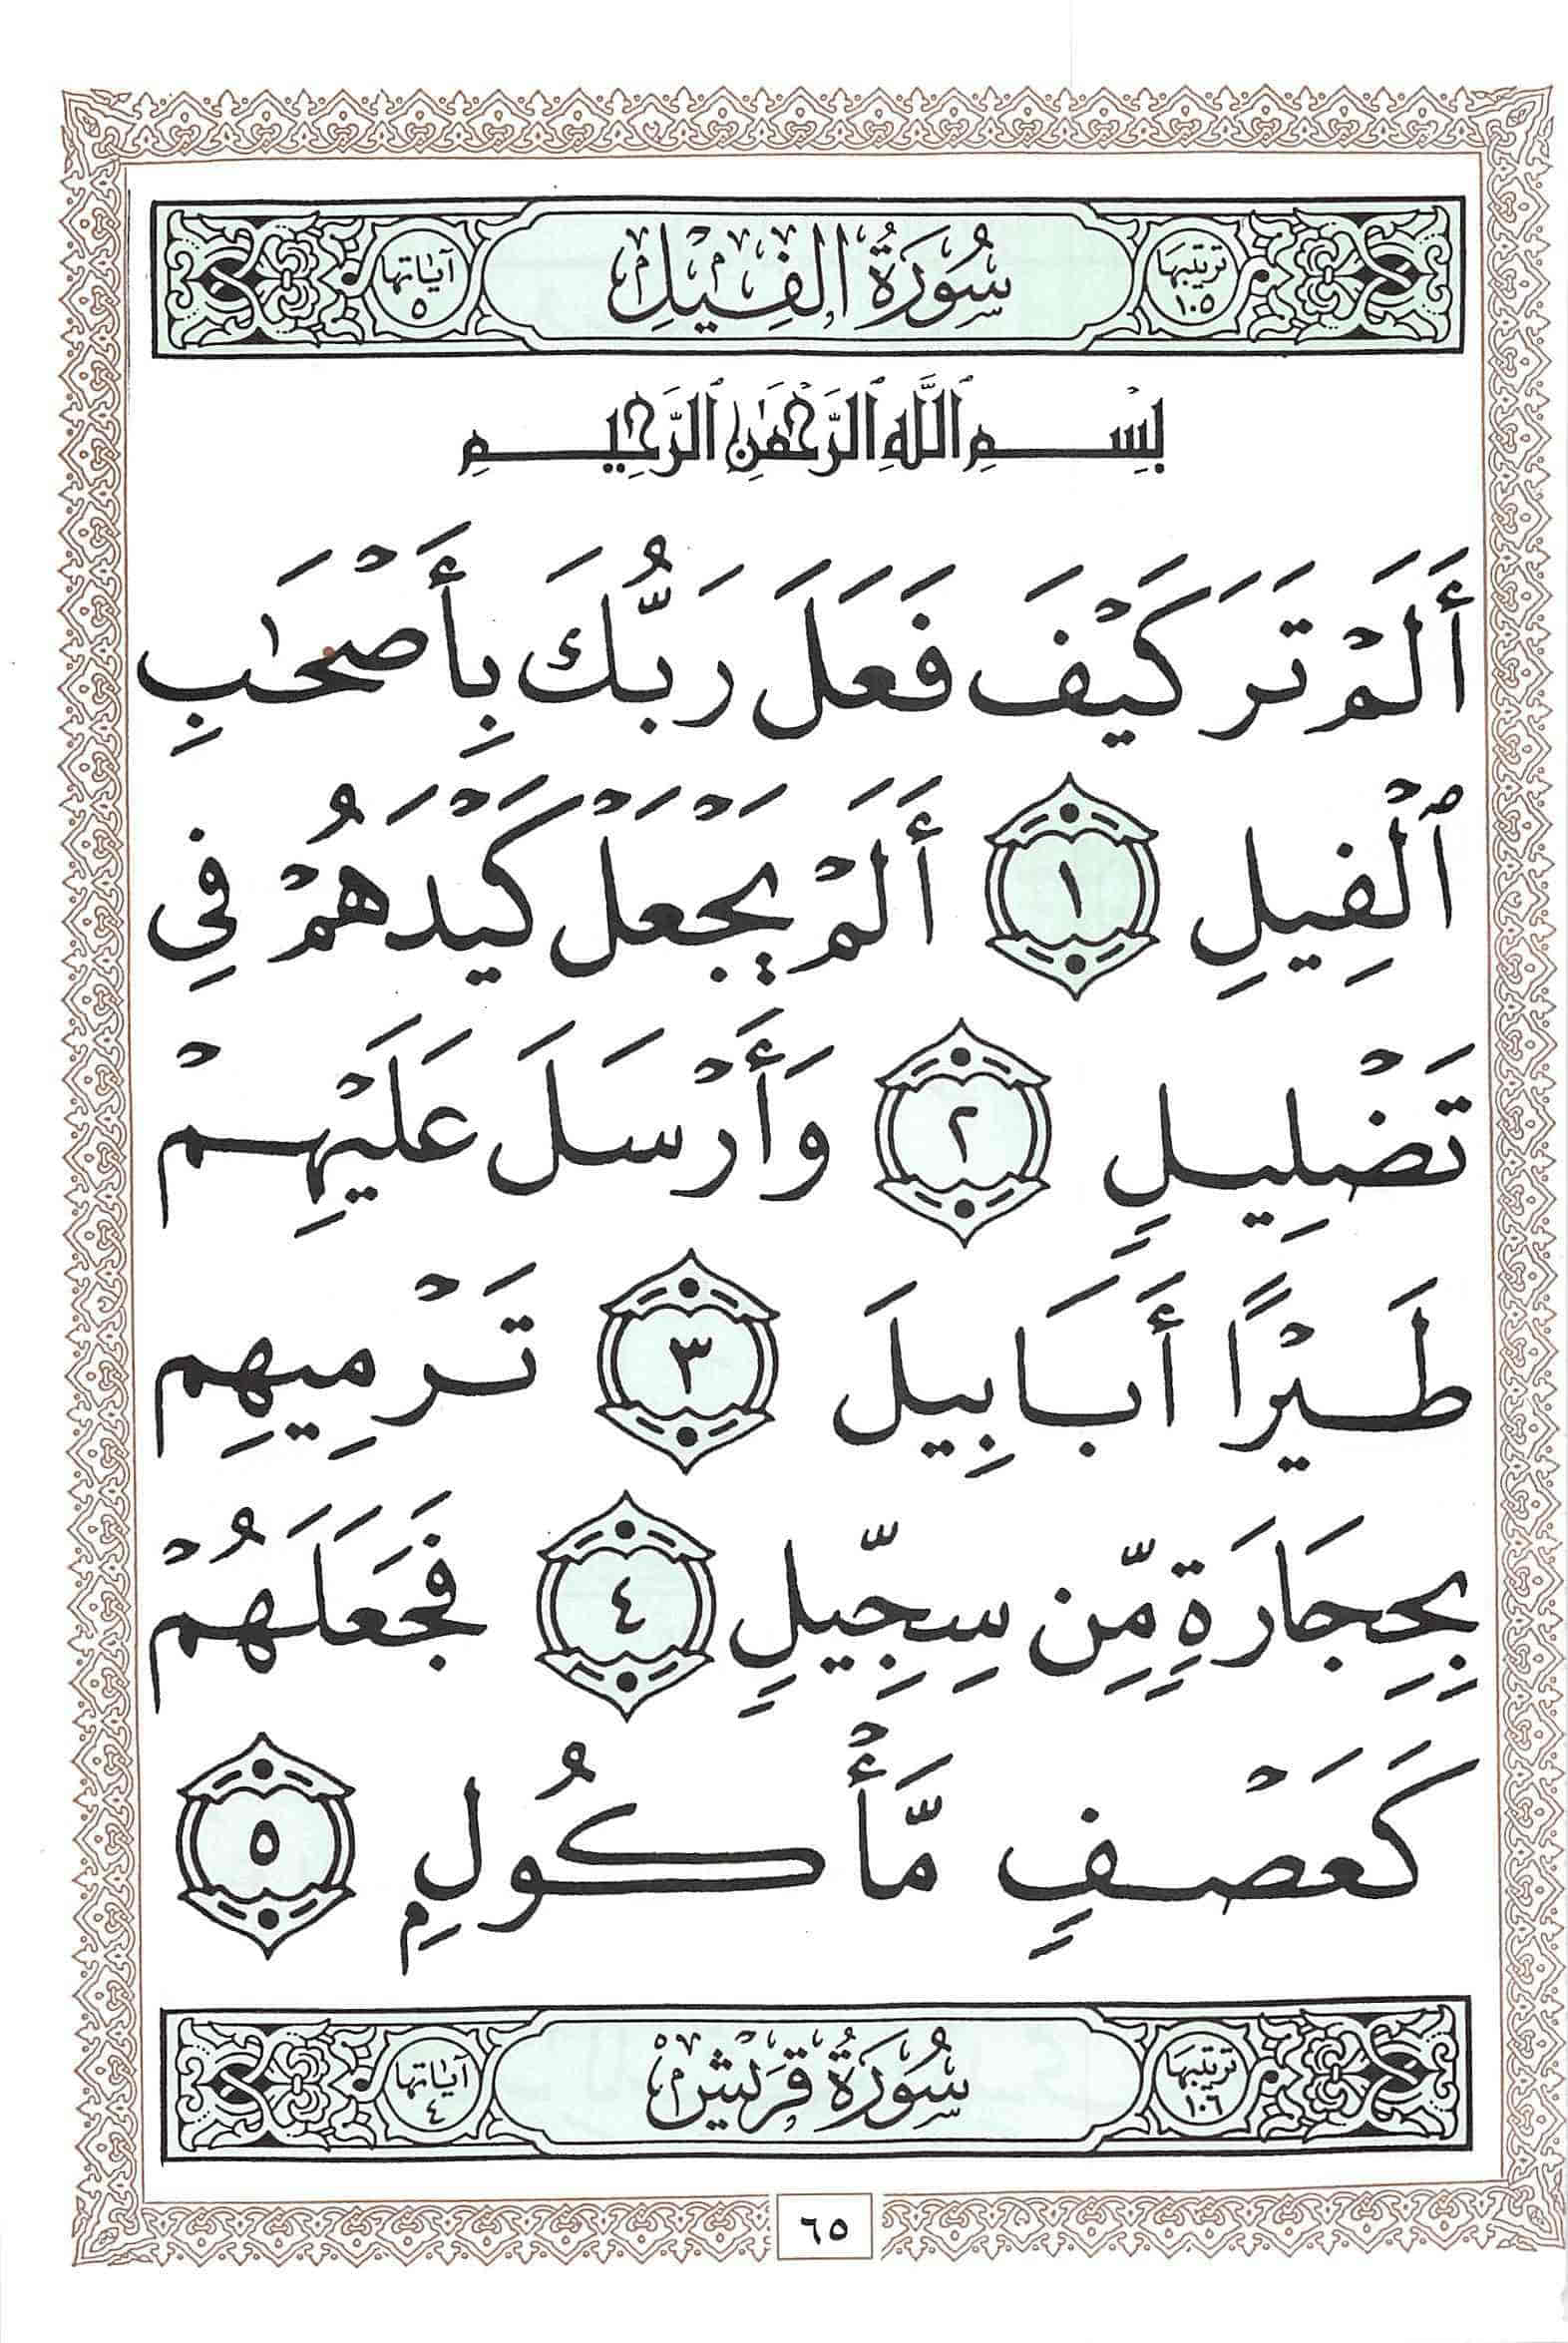 ترتيبها ١٠٥ سُورَةُ الفِيلِ آياتها ٥
بِسْمِ ٱللَّهِ ٱلرَّحْمَٰنِ ٱلرَّحِيمِ
أَلَمْ تَرَ كَيْفَ فَعَلَ رَبُّكَ بِأَصْحَٰبِ
ٱلْفِيلِ ١ أَلَمْ يَجْعَلْ كَيْدَهُمْ فِى
تَضْلِيلٍ ٢ وَأَرْسَلَ عَلَيْهِمْ
طَيْرًا أَبَابِيلَ ٣ تَرْمِيهِم
بِحِجَارَةٍ مِّن سِجِّيلٍ ٤ فَجَعَلَهُمْ
كَعَصْفٍ مَّأْكُولٍۭ ٥
ترتيبها ١٠٦ سُورَةُ قُرَيْشٍ آياتها ٤
٦٥